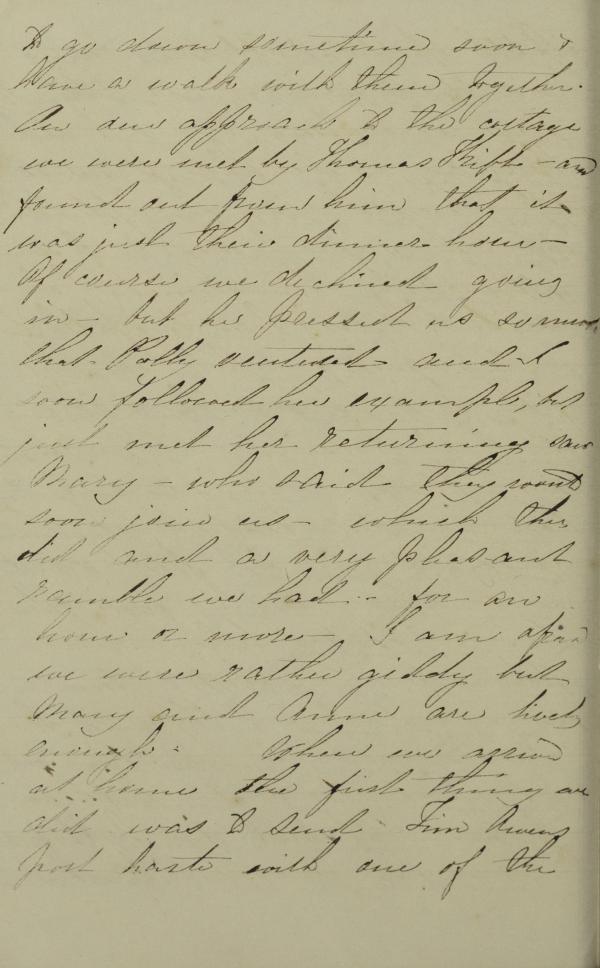 to go down sometime soon &
have a walk with them together.
On our approach to the cottage
we were met by Thomas Thift - and
found out from him that it
was just their dinner hour -
Of course we declined going
in - but he pressed us so much
that Polly ventured and I
soon followed her example, but
just met her returning saw
Mary - who said they would
soon join us - which they
did and a very pleasant
ramble we had - for an
hour or more - I am afraid
we were rather giddy but
Mary and Anne are lively
enough. When we arrived
at home the first thing we
did was to send Tim Owens
post haste with one of the